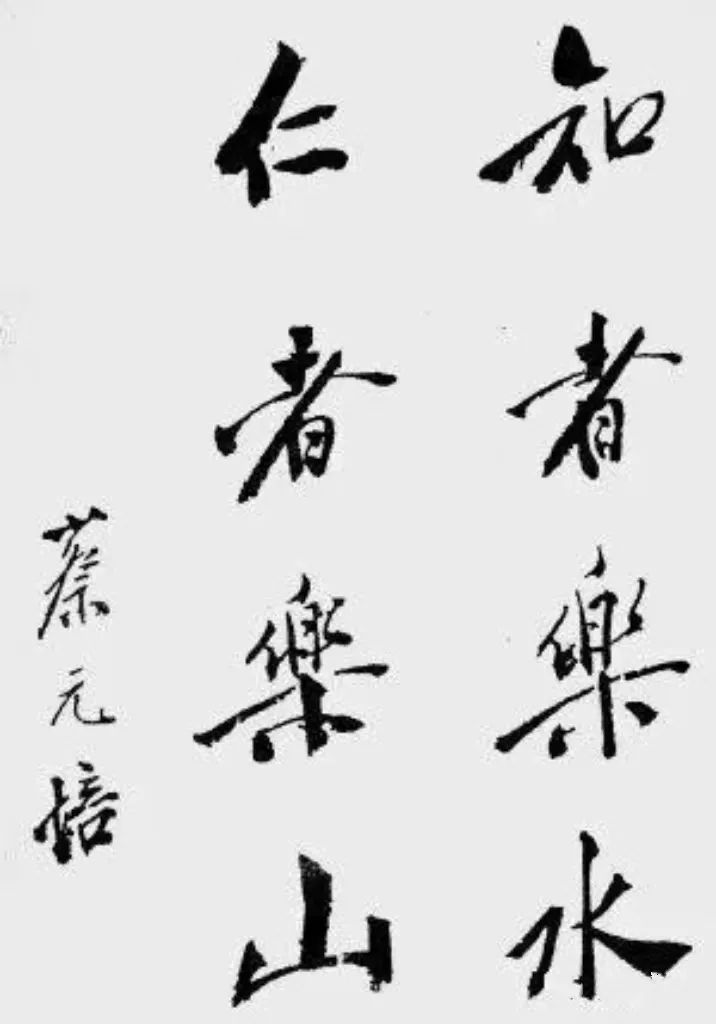 知者樂水
仁者樂山
蔡元培